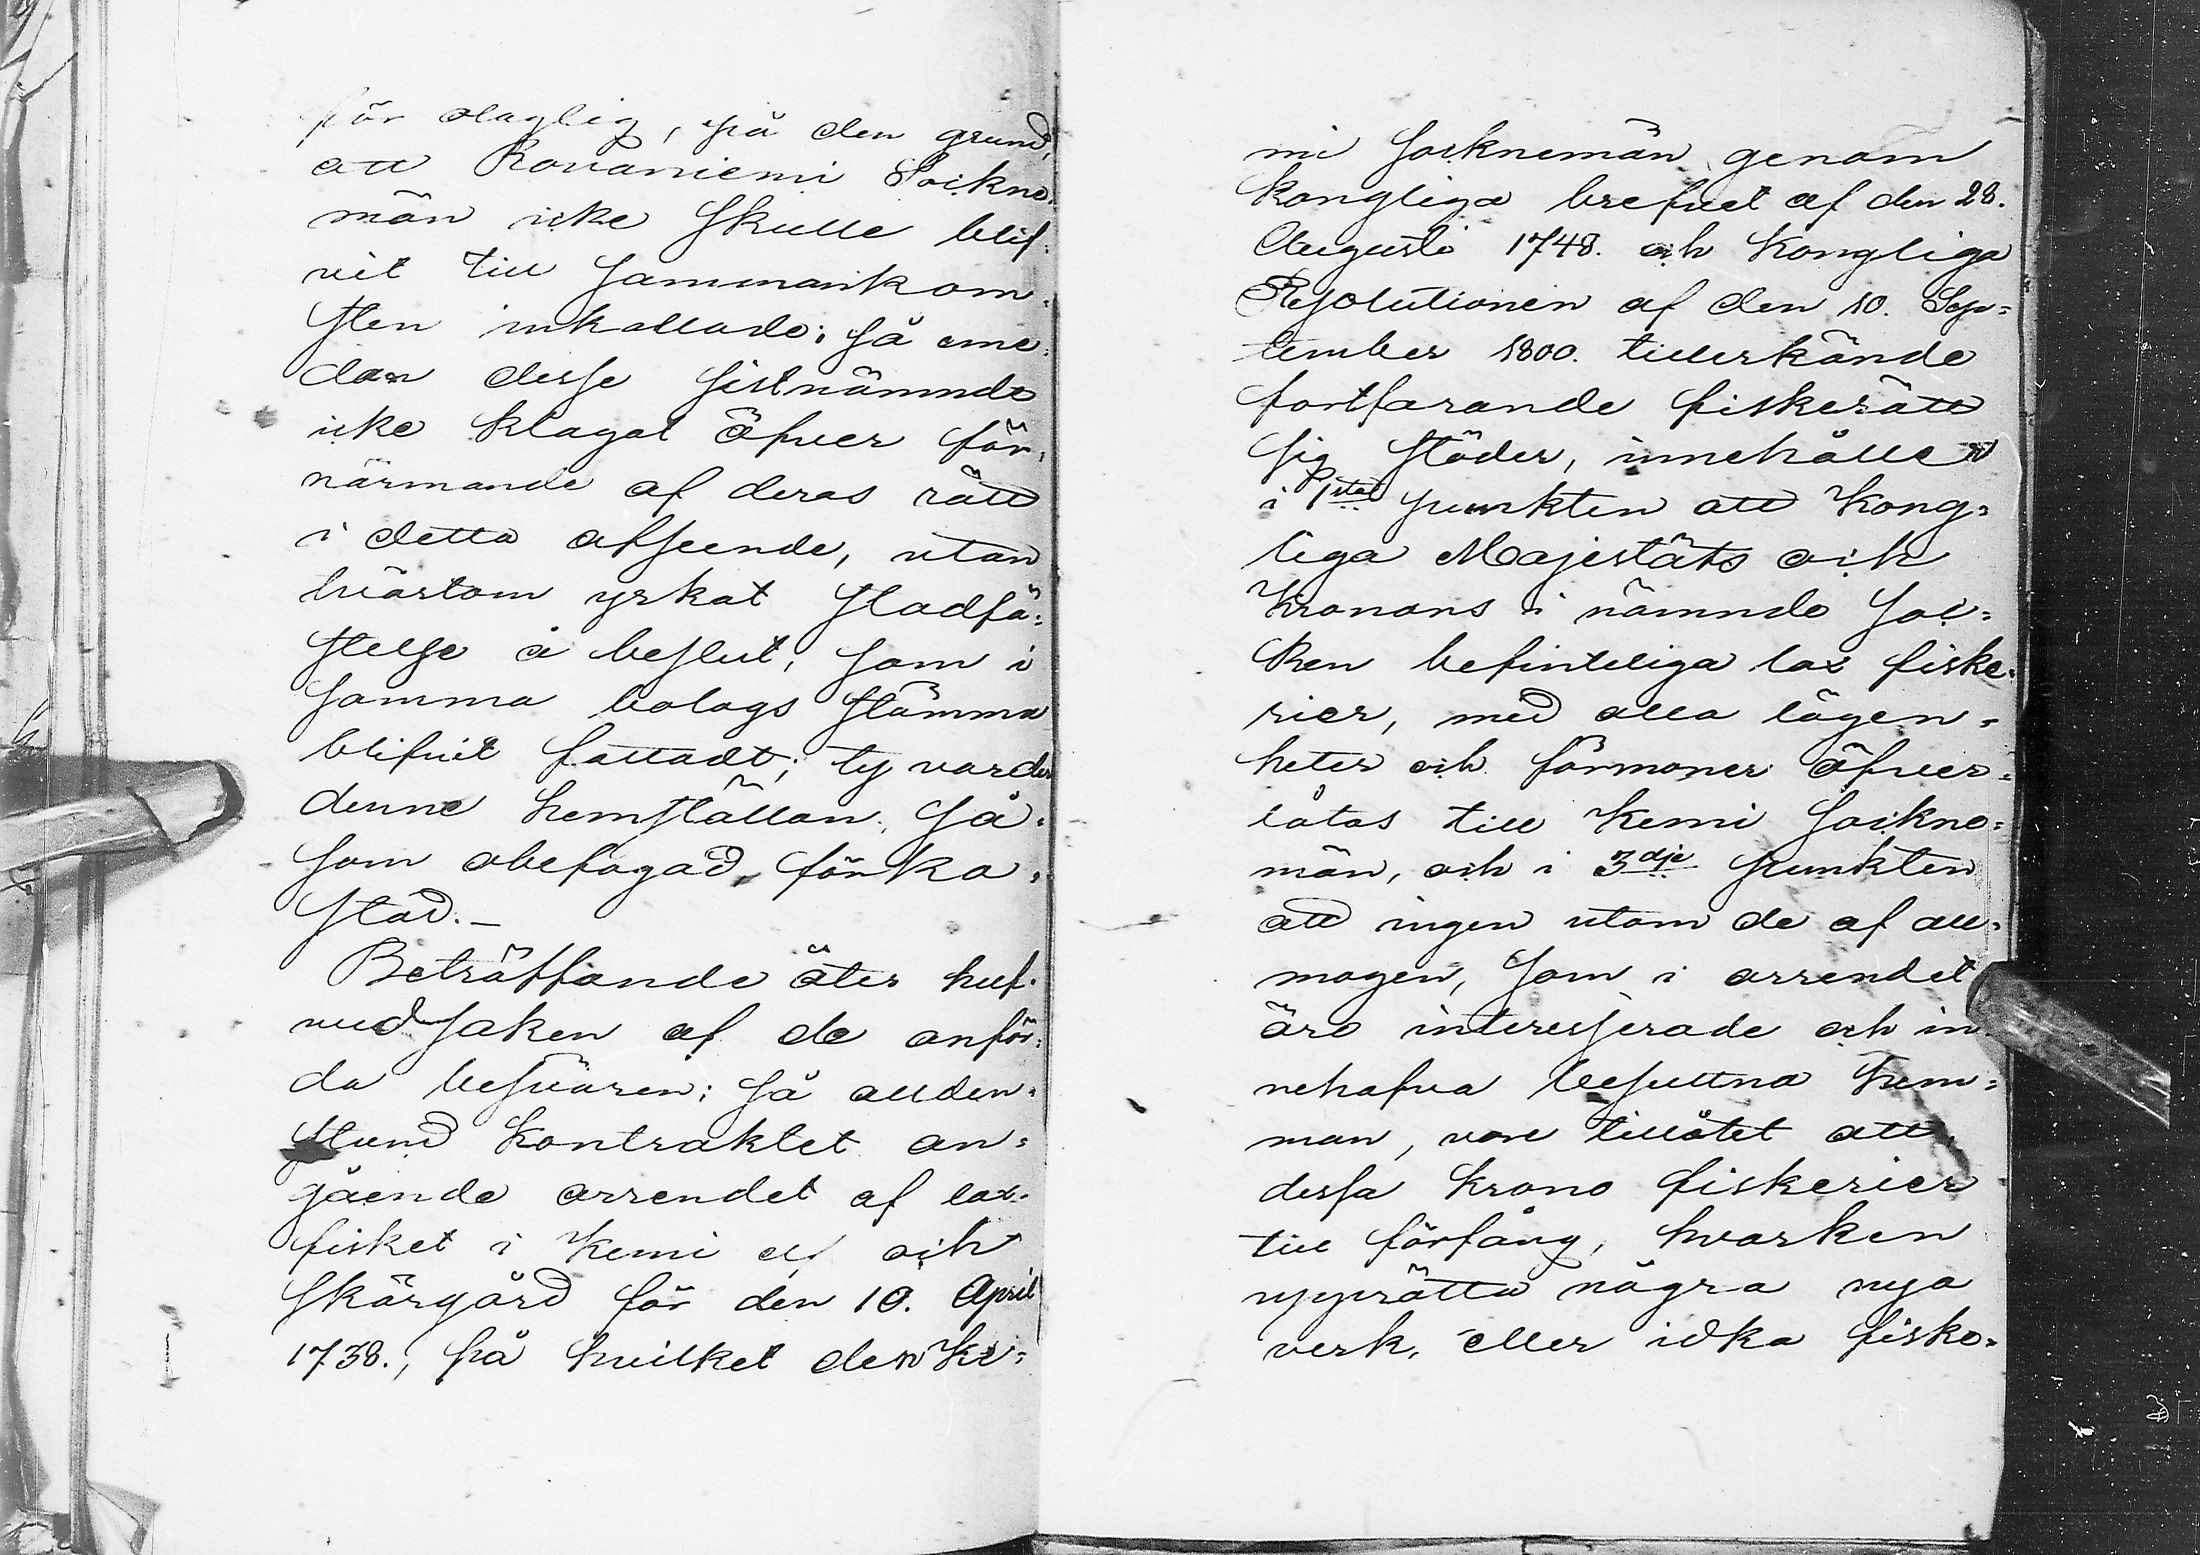 för olaglig, på den grund,
att Rovaniemi Sockne-
män icke skulle blif-
vit till sammankom-
sten inkallade; så eme-
dan desse sistnämnde
icke klagat öfver för-
närmande af deras rätt
i detta afseende, utan
tvärtom yrkat stadfä-
stelse å beslut, som i
samma bolags stämma
blifvit fattadt; ty varder
denne hemställan, så-
som obefogad, förka-
stad.-
Beträffande åter huf-
vudsaken af de anför-
da besvären; så alden-
stund Kontraktet an-
gående arrendet af lax-
fisket i Kemi elf och
skärgård för den 10. April
1738., på hvilket den Ke-
mi socknemän genom
Kongliga brefvet af den 28.
Augusti 1748. och Kongliga
Resolutionen af den 10. Sep-
tember 1800. tillerkände
fortfarande fiskerätt
sig stöder, innehåller
i 1sta punkten att Kong-
liga Majestäts och
Kronans i nämnde Soc-
ken befinteliga lax fiske-
rier, med alla lägen-
heter och förmoner öfver-
låtas till Kemi Sockne-
män, och i 3dje punkten
att ingen utom de af all-
mogen, som i arrendet
äro interesserade och in-
nehafva besuttna hem-
man, vore tillåtet att,
dessa krono fiskerier
till förfång, hvarken
upprätta några nya
verk, eller idka fiske-